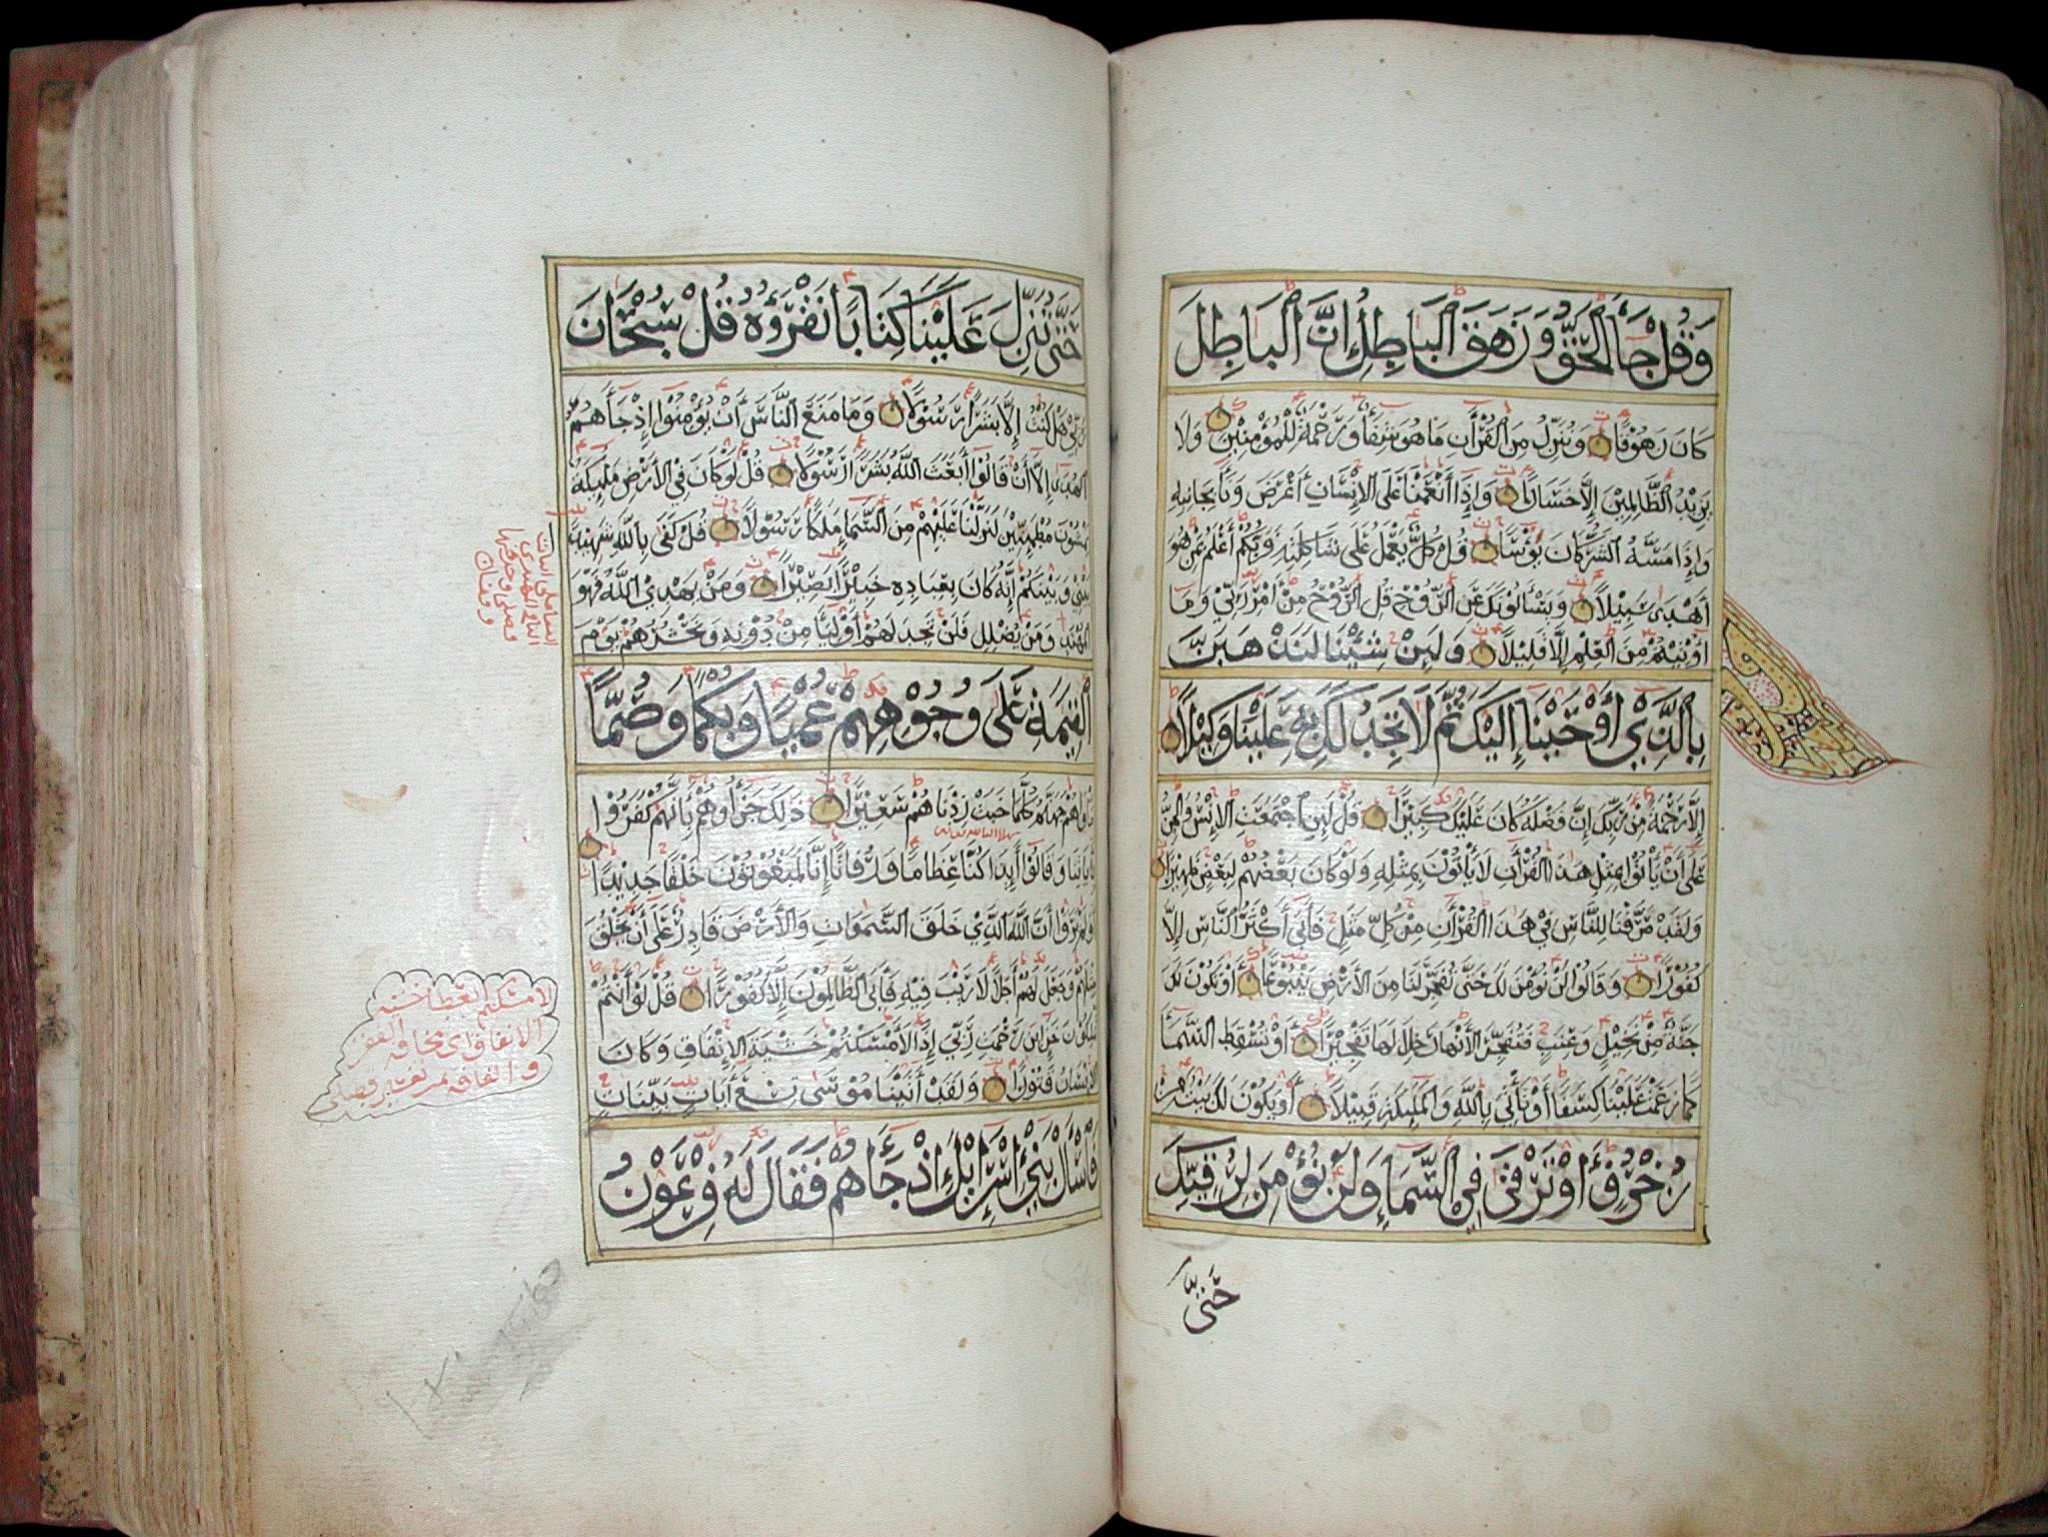 وَقُلْ جَاءَ الْحَقُّ وَزَهَقَ الْبَاطِلُ إِنَّ الْبَاطِلَ
كَانَ زَهُوقًا وَنُنَزِّلُ مِنَ الْقُرْآنِ مَا هُوَ شِفَاءٌ وَرَحْمَةٌ لِّلْمُؤْمِنِيْنَ وَلَا
يَزِيْدُ الظَّالِمِيْنَ إِلَّا خَسَارًا وَإِذَا أَنْعَمْنَا عَلَى الْإِنْسَانِ أَعْرَضَ وَنَأَى بِجَانِبِهِ
وَإِذَا مَسَّهُ الشَّرُّ كَانَ يَؤُسًا قُلْ كُلٌّ يَعْمَلُ عَلَى شَاكِلَتِهِ فَرَبُّكُمْ أَعْلَمُ بِمَنْ هُوَ
أَهْدَى سَبِيْلًا وَيَسْأَلُوْنَكَ عَنِ الرُّوْحِ قُلِ الرُّوْحُ مِنْ أَمْرِ رَبِّيْ وَمَا
أُوْتِيْتُمْ مِنَ الْعِلْمِ إِلَّا قَلِيْلًا وَلَئِنْ شِئْنَا لَنَذْهَبَنَّ
بِالَّذِيْ أَوْحَيْنَا إِلَيْكَ ثُمَّ لَا تَجِدُ لَكَ بِهِ عَلَيْنَا وَكِيْلًا
إِلَّا رَحْمَةً مِنْ رَبِّكَ إِنَّ فَضْلَهُ كَانَ عَلَيْكَ كَبِيْرًا قُلْ لَئِنِ اجْتَمَعَتِ الْإِنْسُ وَالْجِنُّ
عَلَى أَنْ يَأْتُوْا بِمِثْلِ هَذَا الْقُرْآنِ لَا يَأْتُوْنَ بِمِثْلِهِ وَلَوْ كَانَ بَعْضُهُمْ لِبَعْضٍ ظَهِيْرًا
وَلَقَدْ صَرَّفْنَا لِلنَّاسِ فِيْ هَذَا الْقُرْآنِ مِنْ كُلِّ مَثَلٍ فَأَبَى أَكْثَرُ النَّاسِ إِلَّا
كُفُوْرًا وَقَالُوْا لَنْ نُؤْمِنَ لَكَ حَتَّى تُفَجِّرَ لَنَا مِنَ الْأَرْضِ يَنْبُوْعًا أَوْ تَكُوْنَ لَكَ
جَنَّةٌ مِنْ نَخِيْلٍ وَعِنَبٍ فَتُفَجِّرَ الْأَنْهَارَ خِلَالَهَا تَفْجِيْرًا أَوْ تُسْقِطَ السَّمَاءَ
كَمَا زَعَمْتَ عَلَيْنَا كِسَفًا أَوْ تَأْتِيَ بِاللَّهِ وَالْمَلَائِكَةِ قَبِيْلًا أَوْ يَكُوْنَ لَكَ بَيْتٌ مِنْ
زُخْرُفٍ أَوْ تَرْقَى فِي السَّمَاءِ وَلَنْ نُؤْمِنَ لِرُقِيِّكَ
حَتَّى
حَتَّى تُنَزِّلَ عَلَيْنَا كِتَابًا نَقْرَؤُهُ قُلْ سُبْحَانَ
رَبِّيْ هَلْ كُنْتُ إِلَّا بَشَرًا رَسُوْلًا وَمَا مَنَعَ النَّاسَ أَنْ يُؤْمِنُوْا إِذْ جَاءَهُمُ
الْهُدَى إِلَّا أَنْ قَالُوْا أَبَعَثَ اللَّهُ بَشَرًا رَسُوْلًا قُلْ لَوْ كَانَ فِي الْأَرْضِ مَلَائِكَةٌ
يَمْشُوْنَ مُطْمَئِنِّيْنَ لَنَزَّلْنَا عَلَيْهِمْ مِنَ السَّمَاءِ مَلَكًا رَسُوْلًا قُلْ كَفَى بِاللَّهِ شَهِيْدًا
بَيْنِيْ وَبَيْنَكُمْ إِنَّهُ كَانَ بِعِبَادِهِ خَبِيْرًا بَصِيْرًا وَمَنْ يَهْدِي اللَّهُ فَهُوَ
الْمُهْتَدِ وَمَنْ يُضْلِلْ فَلَنْ تَجِدَ لَهُمْ أَوْلِيَاءَ مِنْ دُوْنِهِ وَنَحْشُرُهُمْ يَوْمَ
الْقِيَمَةِ عَلَى وُجُوْهِهِمْ عُمْيًا وَبُكْمًا وَصُمًّا
مَأْوَاهُمْ جَهَنَّمُ كُلَّمَا خَبَتْ زِدْنَاهُمْ سَعِيْرًا ذَلِكَ جَزَاؤُهُمْ بِأَنَّهُمْ كَفَرُوْا
بِآيَاتِنَا وَقَالُوْا أَئِذَا كُنَّا عِظَامًا وَرُفَاتًا إِنَّا لَمَبْعُوْثُوْنَ خَلْقًا جَدِيْدًا
أَوَلَمْ يَرَوْا أَنَّ اللَّهَ الَّذِيْ خَلَقَ السَّمَوَاتِ وَالْأَرْضَ قَادِرٌ عَلَى أَنْ يَخْلُقَ
مِثْلَهُمْ وَجَعَلَ لَهُمْ أَجَلًا لَا رَيْبَ فِيْهِ فَأَبَى الظَّالِمُوْنَ إِلَّا كُفُوْرًا قُلْ لَوْ أَنْتُمْ
تَمْلِكُوْنَ خَزَائِنَ رَحْمَةِ رَبِّيْ إِذًا لَأَمْسَكْتُمْ خَشْيَةَ الْإِنْفَاقِ وَكَانَ
الْإِنْسَانُ قَتُوْرًا وَلَقَدْ آتَيْنَا مُوْسَى تِسْعَ آيَاتٍ بَيِّنَاتٍ
فَاسْأَلْ بَنِيْ إِسْرَائِيْلَ إِذْ جَاءَهُمْ فَقَالَ لَهُ فِرْعَوْنُ
لامسكتم
الانفاق اى مخافة الفقر